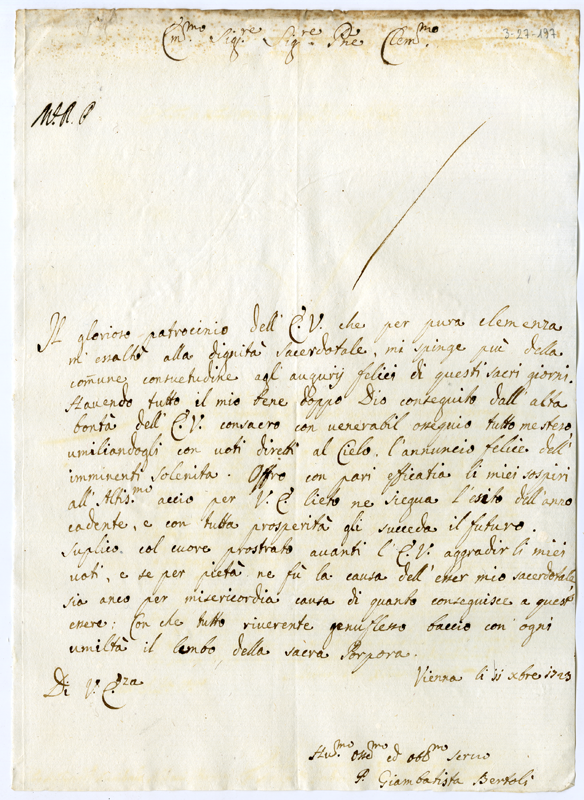 Em.mo Sig.re Sig.re Pne Clem.mo
3-27-197
M.R.P
Il glorioso patrocinio dell'E.V. che per pura clemenza
mi essaltò alla dignità Sacerdotale, mi spinge più della
com̄une consuetudine agli augurij felici di questi sacri giorni.
Havendo tutto il mio bene doppo Dio conseguito dall'alta
bontà dell'E.V. consacro con venerabil ossequio tutto me stesso
umiliandogli con voti diretti al Cielo. l'annuncio felice dell'
imminenti solenità. Offro con pari efficatia li miei sospiri
all'Altis.mo acciò per V.E. lieto ne siegua l'esito dell'anno
cadente, e con tutta prosperità gli succeda il futuro.
Suplico col cuore prostrato avanti l'E.V. aggradir li miei
voti, e se per pietà ne fù la causa dell'esser mio sacerdotale,
sia anco per misericordia causa di quanto conseguisce a quest'
essere; Con che tutto riverente genuflesso baccio con ogni
umiltà il lembo della sacra Porpora.
Di V. E.za
Vienna li 11 xbre 1723
Hu.mo Osse.mo ed obb.mo servo
P. Giambatista Bertoli